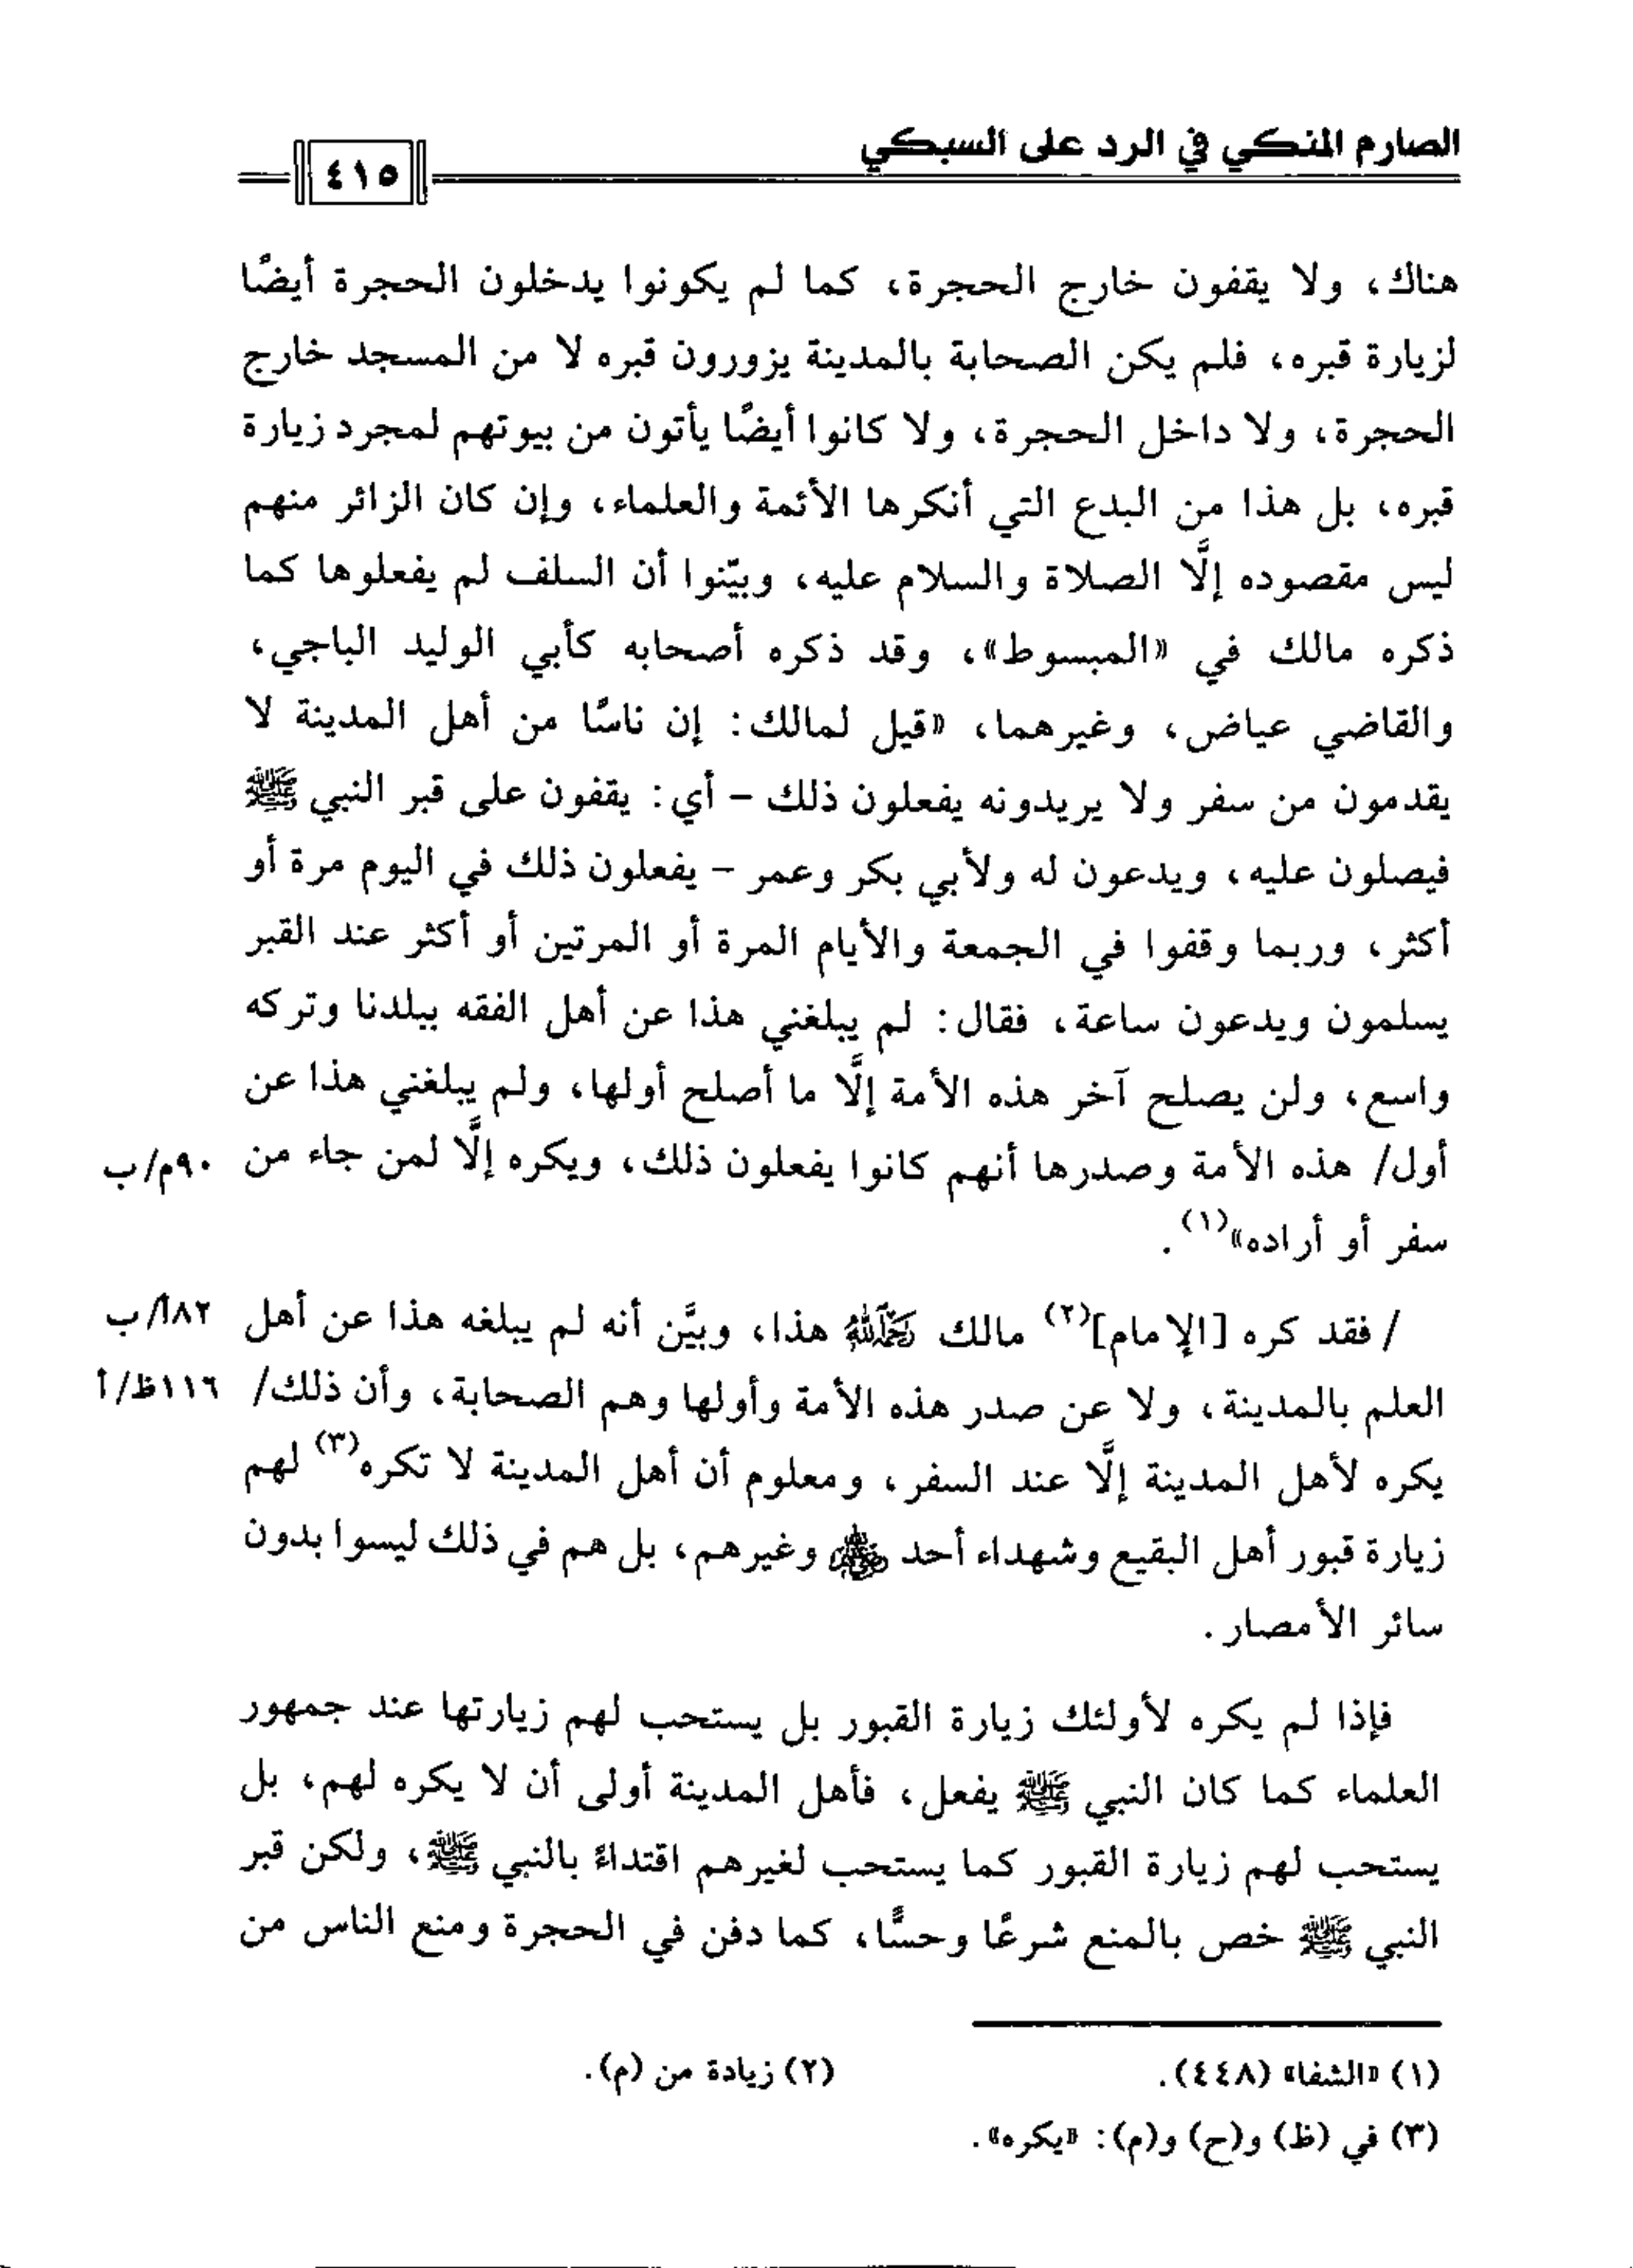 الصارم المنكي في الرد على السبكي
٤١٥
هناك، ولا يقفون خارج الحجرة، كما لم يكونوا يدخلون الحجرة أيضًا
لزيارة قبره، فلم يكن الصحابة بالمدينة يزورون قبره لا من المسجد خارج
الحجرة، ولا داخل الحجرة، ولا كانوا أيضًا يأتون من بيوتهم لمجرد زيارة
قبره، بل هذا من البدع التي أنكرها الأئمة والعلماء، وإن كان الزائر منهم
ليس مقصوده إلَّا الصلاة والسلام عليه، وبيّنوا أن السلف لم يفعلوها كما
ذكره مالك في «المبسوط»، وقد ذكره أصحابه كأبي الوليد الباجي،
والقاضي عياض، وغيرهما، «قيل لمالك: إن ناسًا من أهل المدينة لا
يقدمون من سفر ولا يريدونه يفعلون ذلك – أي: يقفون على قبر النبي ﷺ
فيصلون عليه، ويدعون له ولأبي بكر وعمر – يفعلون ذلك في اليوم مرة أو
أكثر، وربما وقفوا في الجمعة والأيام المرة أو المرتين أو أكثر عند القبر
يسلمون ويدعون ساعة، فقال: لم يبلغني هذا عن أهل الفقه ببلدنا وتركه
واسع، ولن يصلح آخر هذه الأمة إلَّا ما أصلح أولها، ولم يبلغني هذا عن
أول/ هذه الأمة وصدرها أنهم كانوا يفعلون ذلك، ويكره إلَّا لمن جاء من ٩٠م/ب
سفر أو أراده»(١).
/ فقد كره [الإمام](٢) مالك رَحِمَهُ اللهُ هذا، وبيَّن أنه لم يبلغه هذا عن أهل ٨٢أ/ب
العلم بالمدينة، ولا عن صدر هذه الأمة وأولها وهم الصحابة، وأن ذلك/ ١١٦ظ/أ
يكره لأهل المدينة إلَّا عند السفر، ومعلوم أن أهل المدينة لا تكره(٣) لهم
زيارة قبور أهل البقيع وشهداء أحد رضي الله عنهم وغيرهم، بل هم في ذلك ليسوا بدون
سائر الأمصار.
فإذا لم يكره لأولئك زيارة القبور بل يستحب لهم زيارتها عند جمهور
العلماء كما كان النبي ﷺ يفعل، فأهل المدينة أولى أن لا يكره لهم، بل
يستحب لهم زيارة القبور كما يستحب لغيرهم اقتداءً بالنبي ﷺ، ولكن قبر
النبي ﷺ خص بالمنع شرعًا وحسًّا، كما دفن في الحجرة ومنع الناس من
(١) «الشفا» (٤٤٨). (٢) زيادة من (م).
(٣) في (ظ) و(ح) و(م): «يكره».